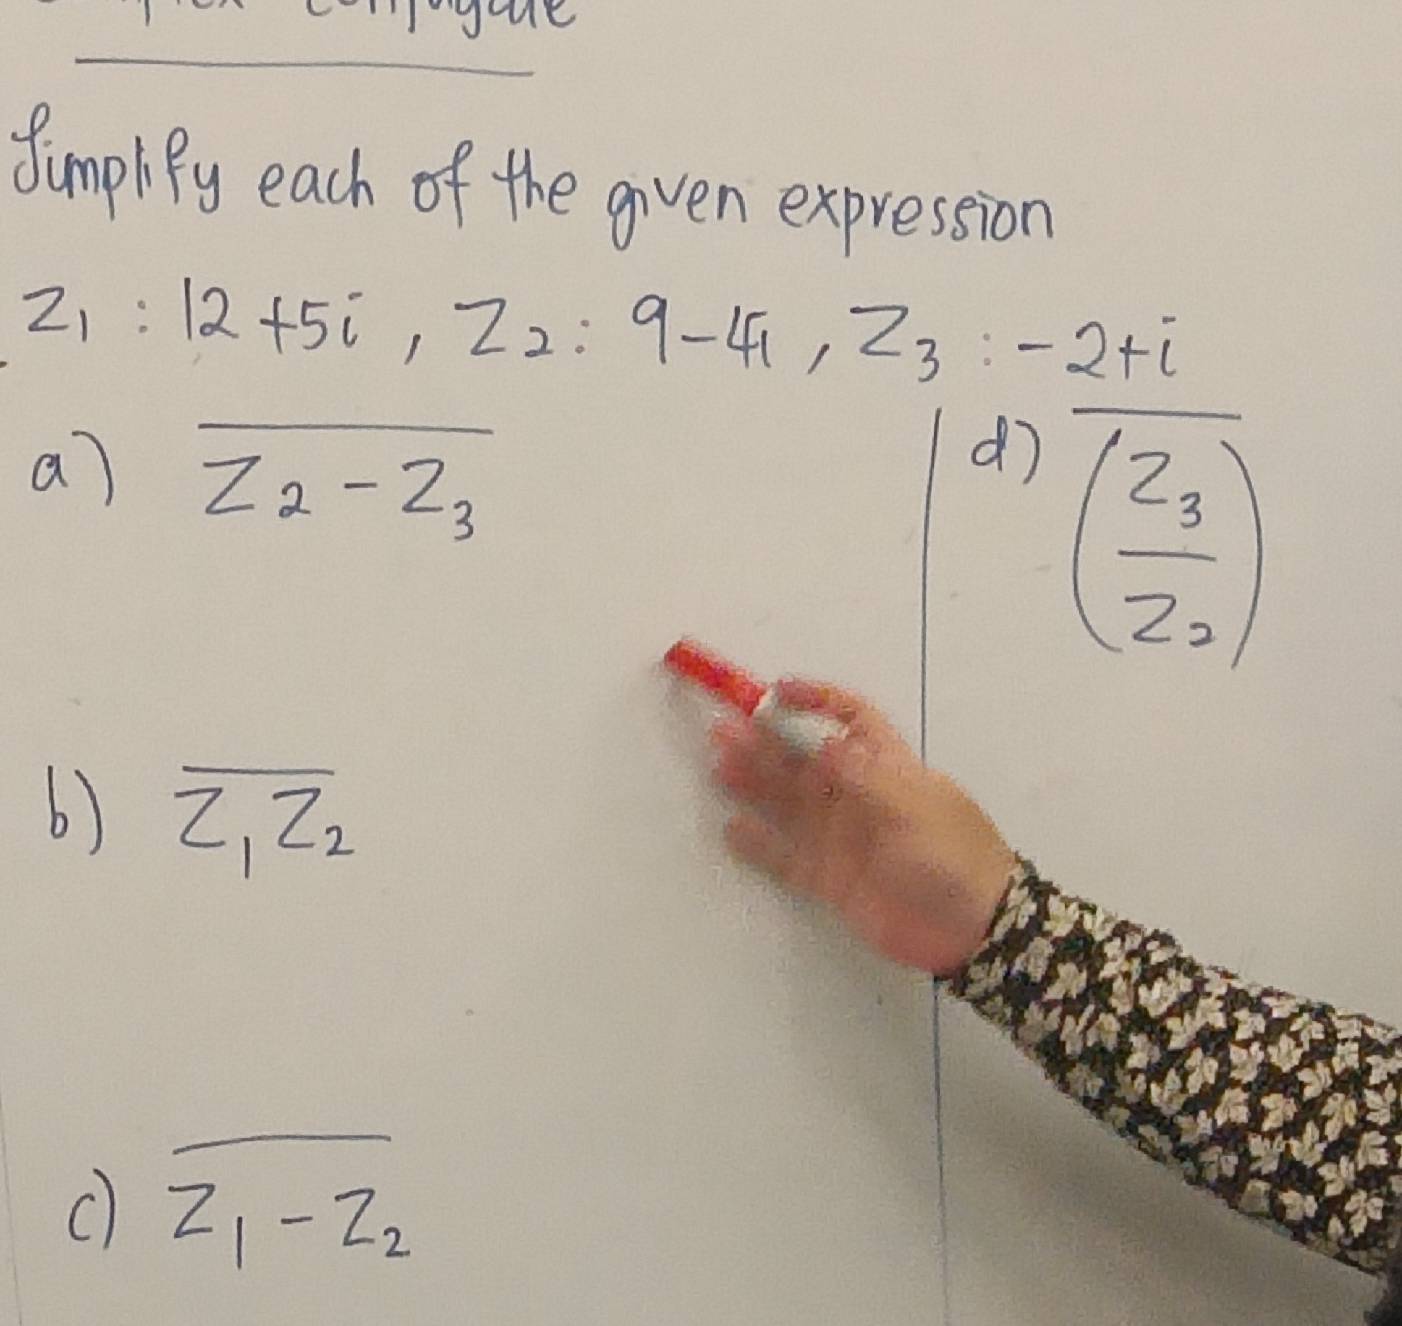 Simplify each of the given expression
Z₁ : 12 + 5i , Z₂ : 9 - 4i , Z₃ : - 2 + i
a) \overline{Z₂ - Z₃}
b) \overline{Z₁ Z₂}
c) \overline{Z₁ - Z₂}
d) \overline{(Z₃/Z₂)}